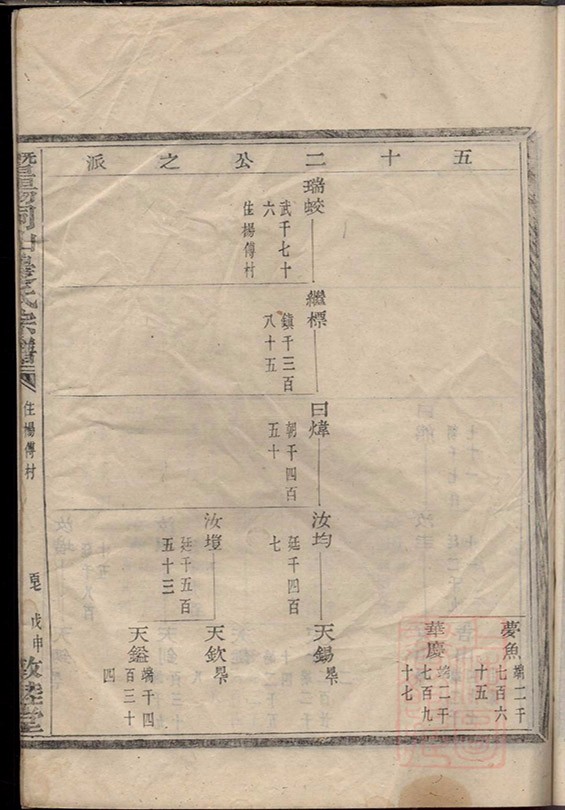 五十二公之派
瑞蛟
武千七十
六
住楊傅村
繼標
鎮千三百
八十五
曰煒
朝千四百
五十
汝均
廷千四百
七
汝塏
廷千五百
五十三
夢魚
端二千
七百六
十五
華慶
端二千
七百九
十七
天錫
天欽
天鎰
端千四
百三十
四
氏宗譜
住楊傅村
戊申
敦睦堂